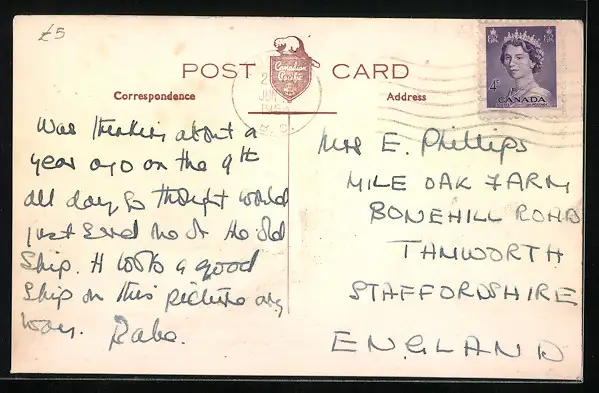 £5
POST CARD
Canadian Pacific
Correspondence
Address
4c
CANADA
JUN
Was thinking about a
year ago on the 9th
all day so thought would
just send me the old
Ship. It looks a good
Ship on this picture any
way.
Mrs E. Phillips
MILE OAK FARM
BONEHILL ROAD
TAMWORTH
STAFFORDSHIRE
ENGLAND